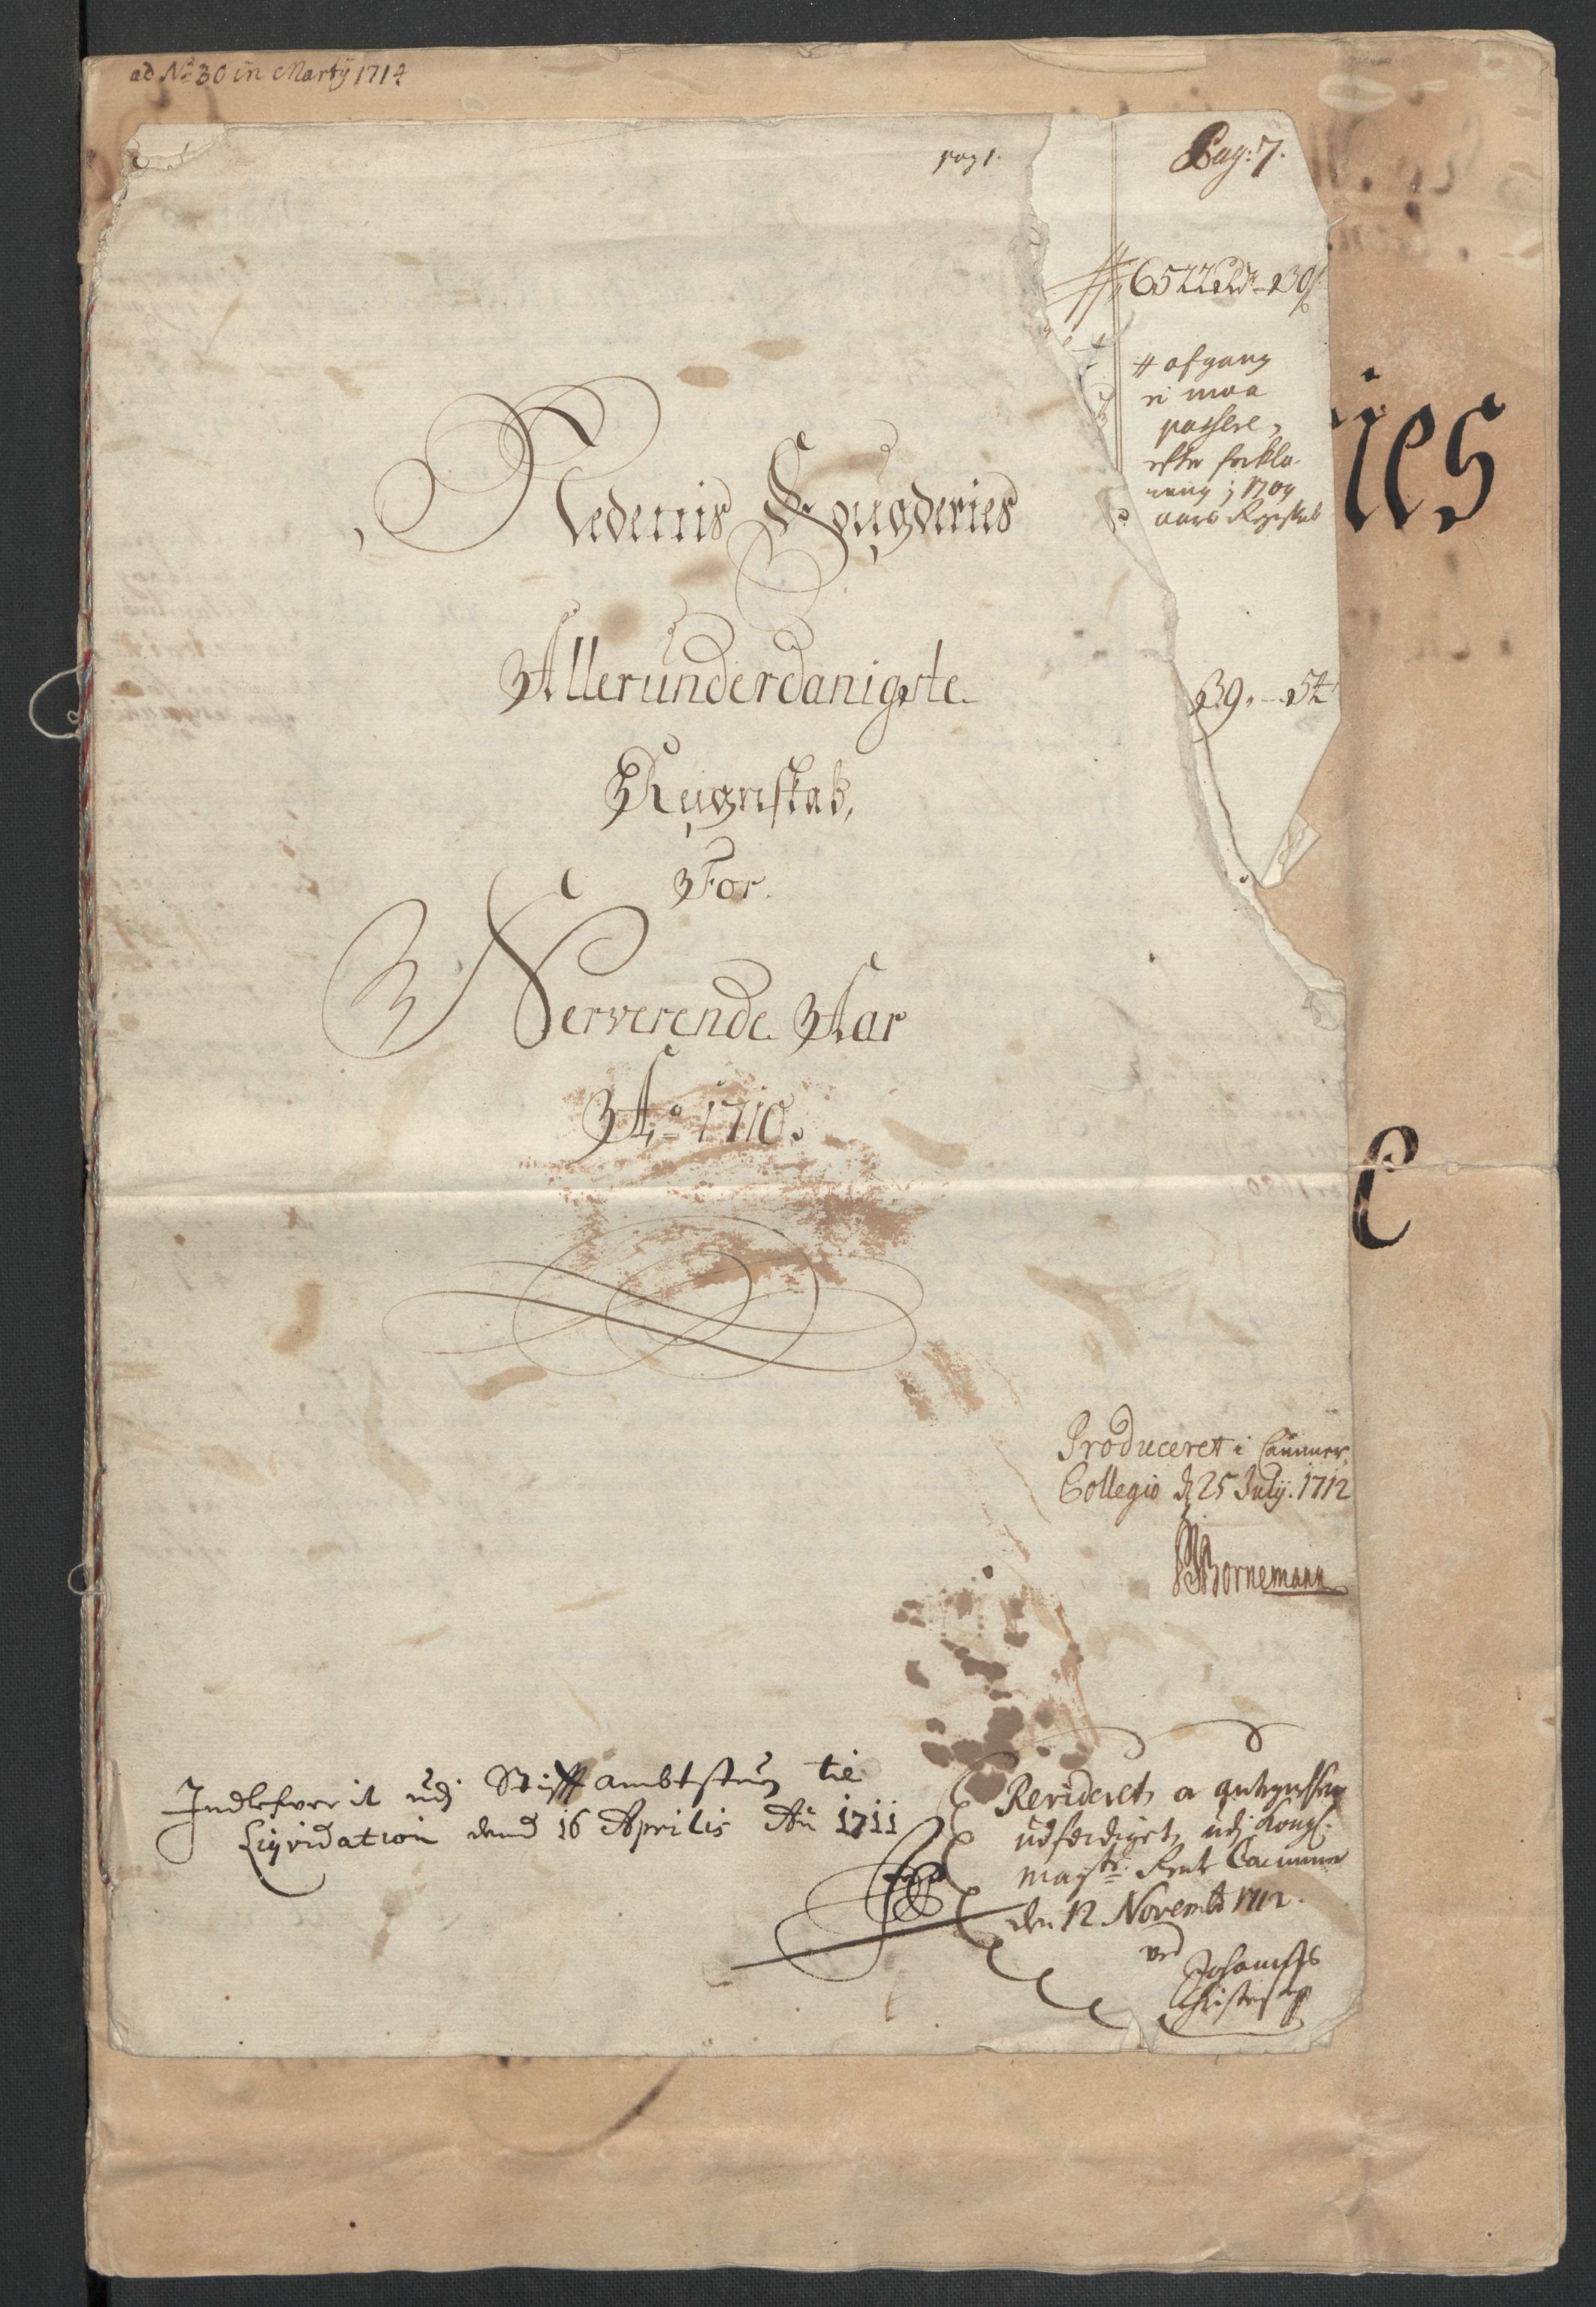 ad No 30 in Martij 1714
pag 1.
Pag: 7.
6522 rdr 30
# afgang
ei maa
passere,
efter forkla-
ring i 1709
aars Regnskab
39. - 54
ies
Nedenis Fougderies
Allerunderdanigste
Regnskab,
For
Nerverende Aar
Ao 1710.
C
Produceret i Cammer
Collegio d 25 Julij. 1712
Bornemann
Indlefverit udj Stifftambtstuen til
Liqvidation dend 16 Aprilis An 1711
Revideret, og antegnelser
udferdiget, udj Kongl.
Maysts. Rente Cammer
den 12 Novembr 1712.
ved
Johannes